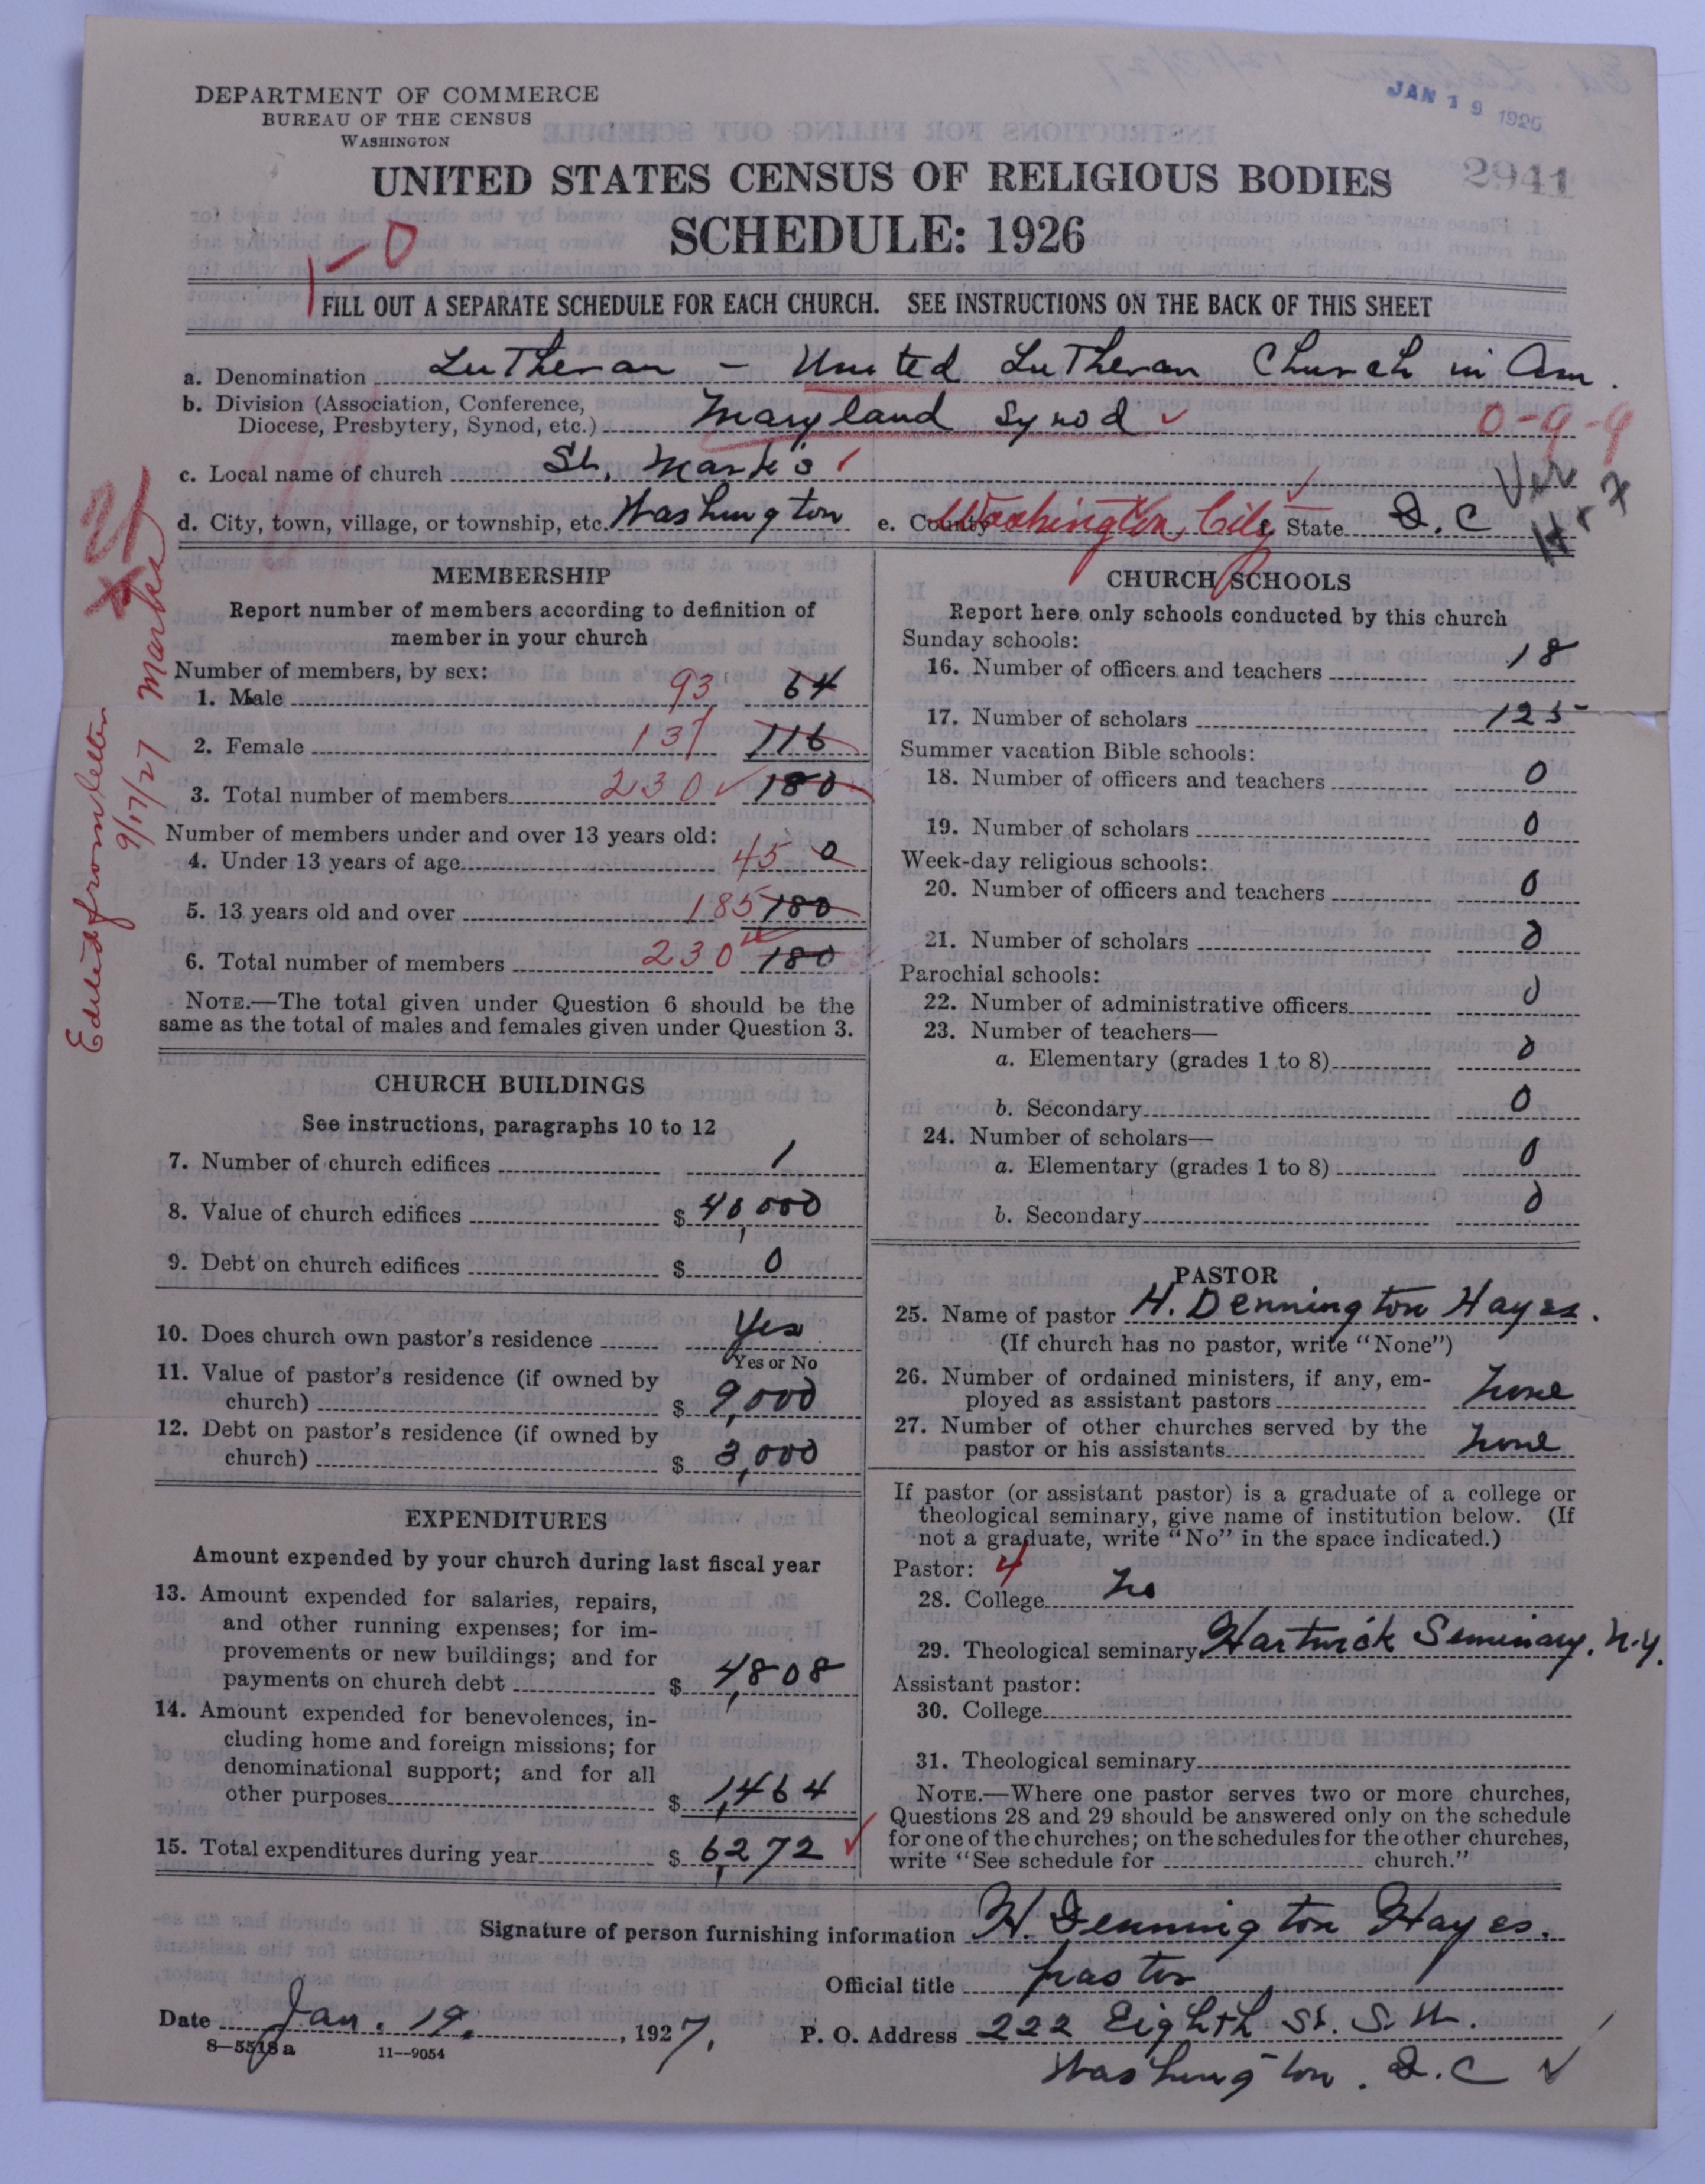 DEPARTMENT OF COMMERCE
BUREAU OF THE CENSUS
WASHINGTON
JAN 19 1926
2941
UNITED STATES CENSUS OF RELIGIOUS BODIES
SCHEDULE: 1926
1-0
FILL OUT A SEPARATE SCHEDULE FOR EACH CHURCH. SEE INSTRUCTIONS ON THE BACK OF THIS SHEET
a. Denomination Lutheran - United Lutheran Church in Am.
b. Division (Association, Conference,
Diocese, Presbytery, Synod, etc.) Maryland Synod ✓ 0-9-9
c. Local name of church St. Mark's
Ver
H r 7
d. City, town, village, or township, etc. Washington e. County Washington City f. State D.C
Edited from letter
9/17/27 Marks
MEMBERSHIP
Report number of members according to definition of
member in your church
Number of members, by sex:
1. Male 93 64
2. Female 137 116
3. Total number of members 230 ✓ 180
Number of members under and over 13 years old:
4. Under 13 years of age 45 0
5. 13 years old and over 185 180
6. Total number of members 230 180
NOTE.—The total given under Question 6 should be the
same as the total of males and females given under Question 3.
CHURCH BUILDINGS
See instructions, paragraphs 10 to 12
7. Number of church edifices 1
8. Value of church edifices $ 40,000
9. Debt on church edifices $ 0
10. Does church own pastor's residence Yes
Yes or No
11. Value of pastor's residence (if owned by
church) $ 9,000
12. Debt on pastor's residence (if owned by
church) $ 3,000
EXPENDITURES
Amount expended by your church during last fiscal year
13. Amount expended for salaries, repairs,
and other running expenses; for im-
provements or new buildings; and for
payments on church debt $ 4,808
14. Amount expended for benevolences, in-
cluding home and foreign missions; for
denominational support; and for all
other purposes $ 1,464
15. Total expenditures during year $ 6,272 ✓
CHURCH SCHOOLS
Report here only schools conducted by this church
Sunday schools:
16. Number of officers and teachers 18
17. Number of scholars 125
Summer vacation Bible schools:
18. Number of officers and teachers 0
19. Number of scholars 0
Week-day religious schools:
20. Number of officers and teachers 0
21. Number of scholars 0
Parochial schools:
22. Number of administrative officers 0
23. Number of teachers—
a. Elementary (grades 1 to 8) 0
b. Secondary 0
24. Number of scholars—
a. Elementary (grades 1 to 8) 0
b. Secondary 0
PASTOR
25. Name of pastor H. Dennington Hayes.
(If church has no pastor, write "None")
26. Number of ordained ministers, if any, em-
ployed as assistant pastors None
27. Number of other churches served by the
pastor or his assistants None
If pastor (or assistant pastor) is a graduate of a college or
theological seminary, give name of institution below. (If
not a graduate, write "No" in the space indicated.)
Pastor: 4
28. College No
29. Theological seminary Hartwick Seminary, N.Y.
Assistant pastor:
30. College
31. Theological seminary
NOTE.—Where one pastor serves two or more churches,
Questions 28 and 29 should be answered only on the schedule
for one of the churches; on the schedules for the other churches,
write "See schedule for church."
Signature of person furnishing information H. Dennington Hayes.
Official title Pastor
Date Jan. 19, 1927.
P. O. Address 222 Eighth St. S.W.
Washington. D.C ✓
8—5518a 11—9054